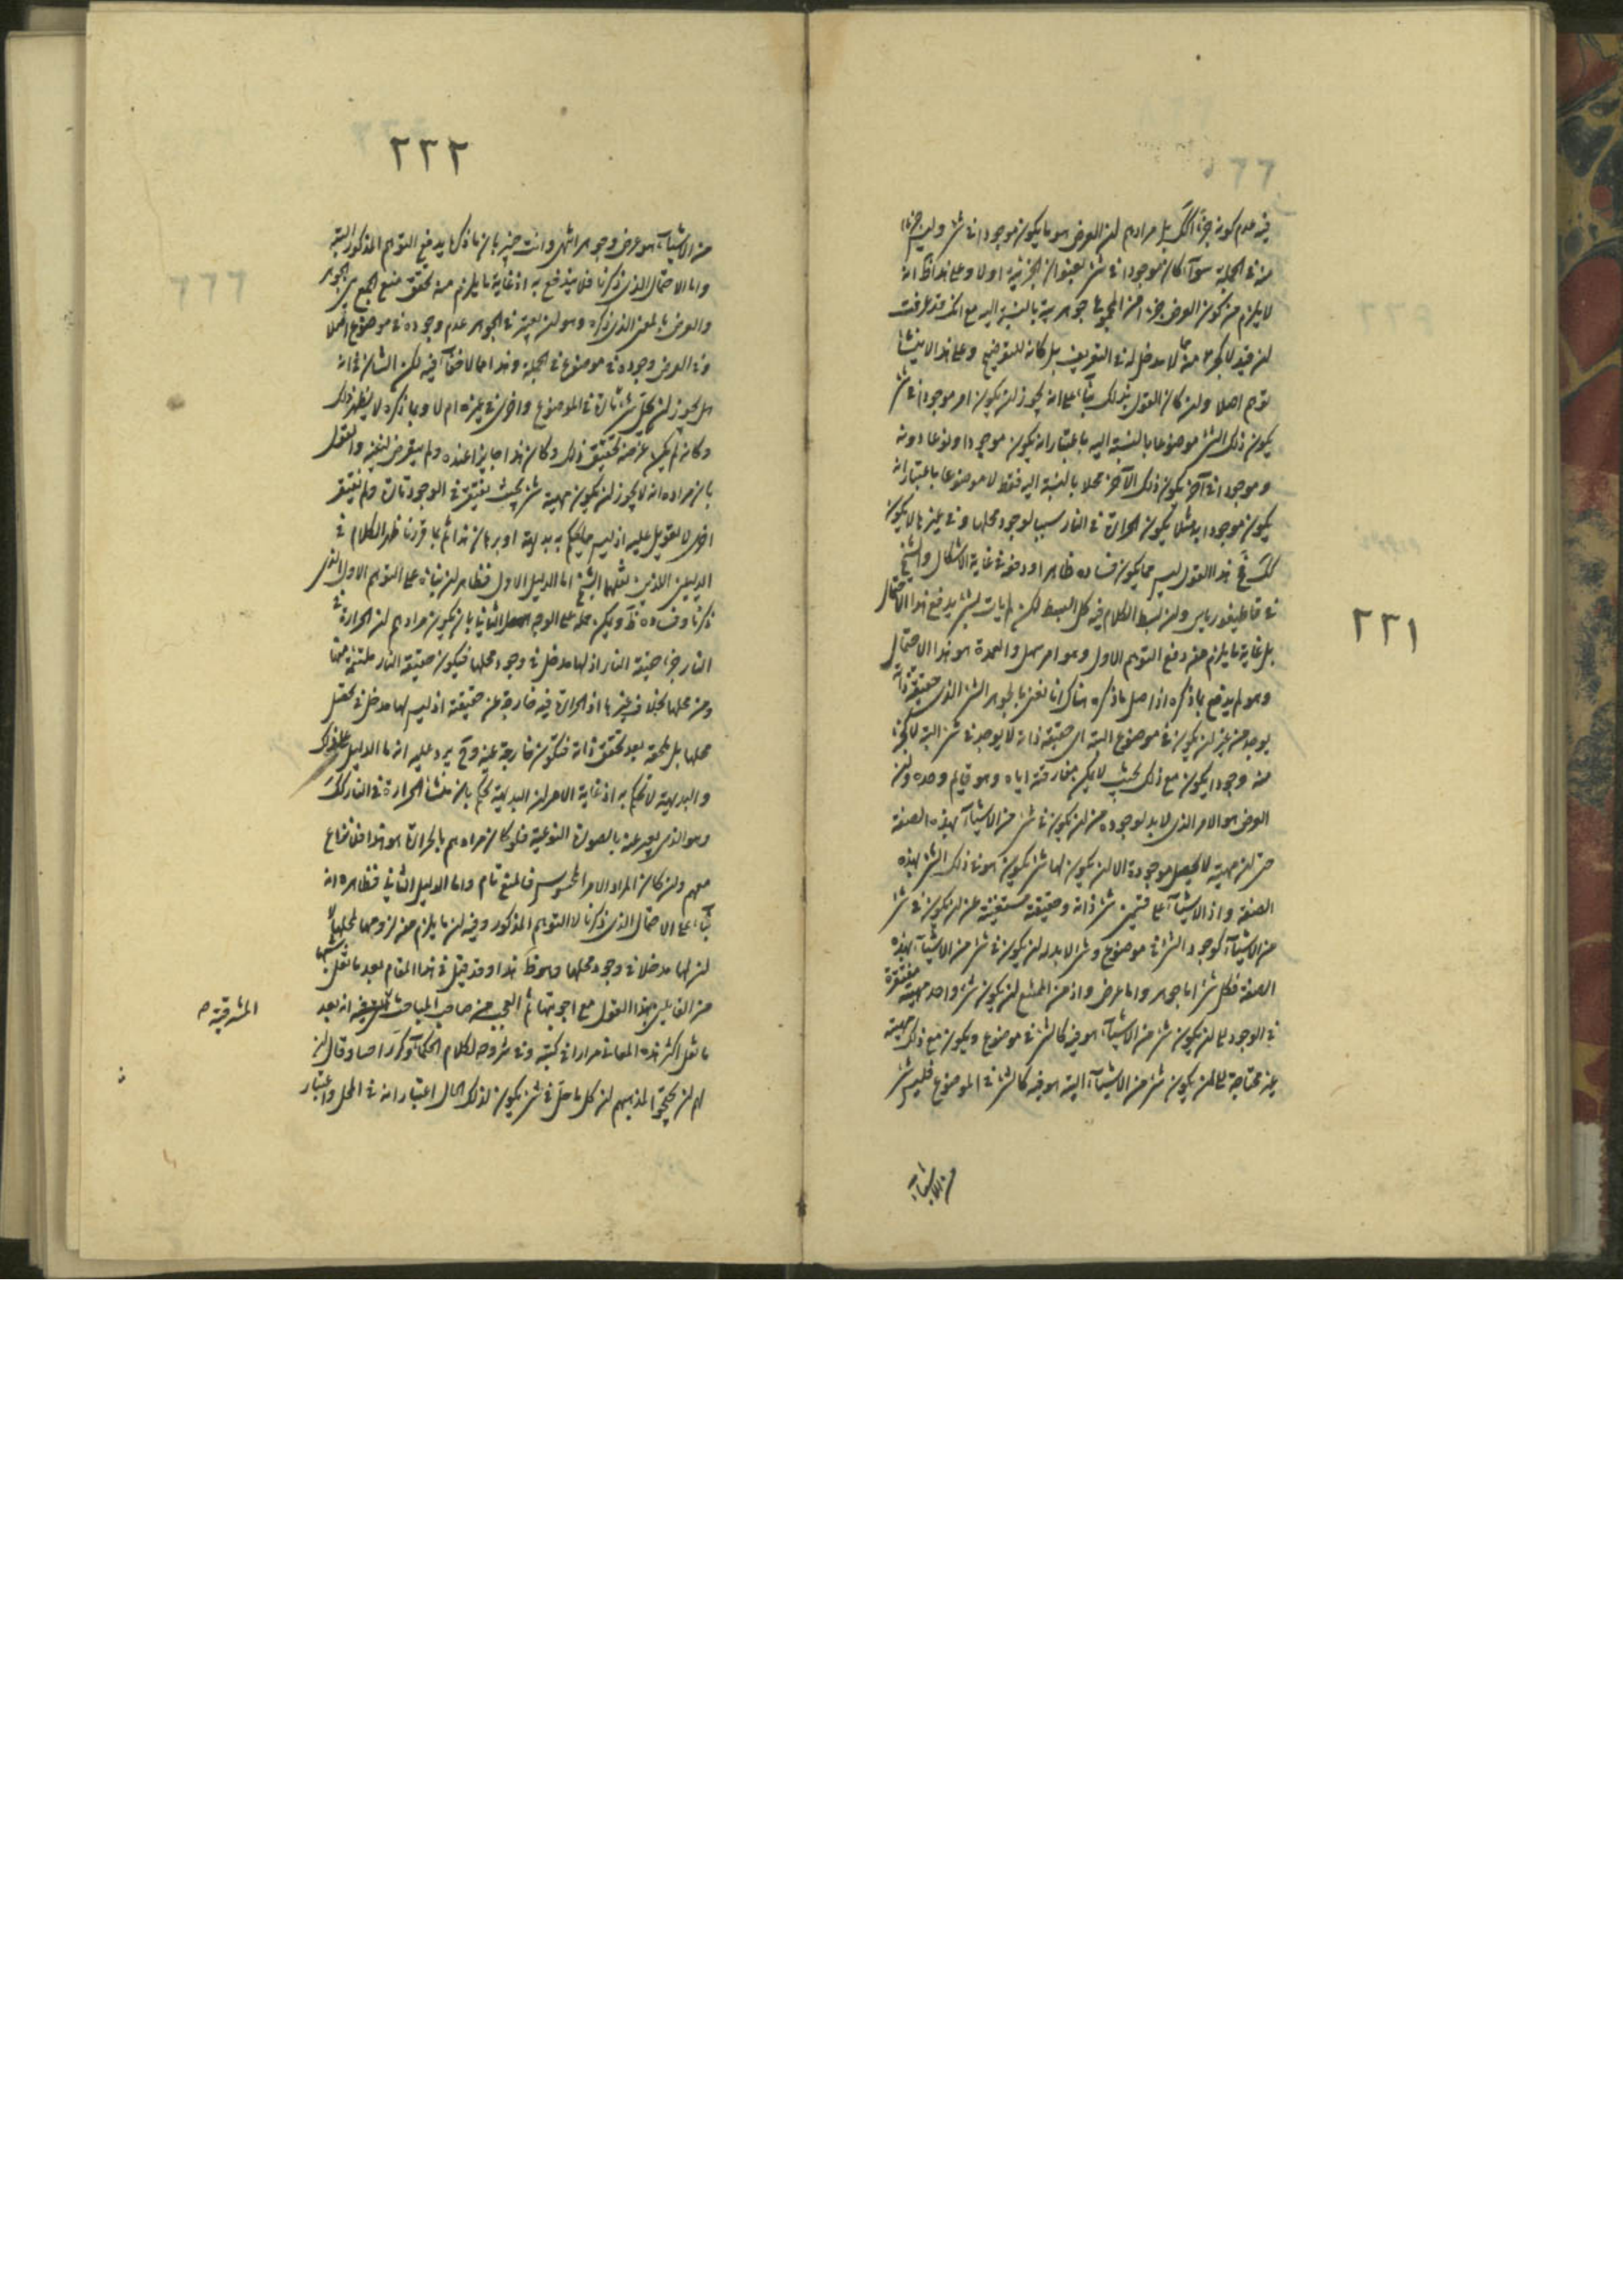 ٢٣١
فيه عدم كونه جزءا كك بل مرادهم ان العرض هو ما يكون موجودا في شئ وليس جزءا
منه في الجملة سوآء كان موجودا في شئ بعنوان الجزئية او لا وعلى هذا ظ انه
لا يلزم من كون العرض جزءا من المجموع جوهرية بالنسبة اليه مع انك قد عرفت
ان قيد لا كجزء منه لا مدخل له في التعريف بل كانه للتوضيح وعلى هذا لا ينشأ
توهم اصلا وان كان القول بذلك بنآء على انه يجوز ان يكون امر موجودا في شئ
يكون ذلك الشئ موضوعا بالنسبة اليه باعتبار انه يكون موجودا ونوعا دونه
وموجودا في آخر يكون ذلك الآخر محلا بالنسبة اليه فقط لا موضوعا باعتبار انه
يكون موجودا به مثلا يكون الحرارة في النار سببا لوجود محلها وفي غيرها لا يكون
كك فح هذا القول ليس مما يكون فساده ظاهرا ودفعه في غاية الاشكال والشيخ
في قاطيغورياس وان بسط الكلام فيه كل البسط لكن لم يات بشئ يدفع هذا الاحتمال
بل غاية ما يلزم منه دفع التوهم الاول وهو امر سهل والعمدة هو هذا الاحتمال
وهو لم يدفع بما ذكره اذ اصل ما ذكره هناك انا نعني بالجوهر الشئ الذي حقيقة ذاته
يوجد من غير ان يكون في موضوع البتة اى حقيقة ذاته لا يوجد في شئ البتة لا كجزء
منه وجودا يكون مع ذلك بحيث لا يمكن مفارقته اياه وهو قايم وحده وان
العرض هو الامر الذي لا بد لوجوده من ان يكون في شئ من الاشيآء بهذه الصفة
حتى ان مهيته لا يحصل موجودة الا ان يكون لها شئ يكون هو في ذلك الشئ بهذه
الصفة واذ الاشيآء على قسمين شئ ذاته وحقيقته مستغنية عن ان يكون في شئ
من الاشيآء كوجود الشئ في موضوع وشئ لا بد له ان يكون في شئ من الاشيآء بهذه
الصفة فكل شئ اما جوهر واما عرض واذ من الممتنع ان يكون شئ واحد مهيته مفتقرة
في الوجود الى ان يكون شئ من الاشيآء هو فيه كالشئ في موضوع ويكون مع ذلك مهيته
غير محتاجة الى ان يكون شئ من الاشيآء البتة هو فيه كالشئ في الموضوع فليس شئ
من الاشيآء
٢٣٢
من الاشيآء هو عرض وجوهر انتهى وانت خبير بان ما ذكره يدفع التوهم المذكور البتة
واما الاحتمال الذي ذكرنا فلا يندفع به اذ غاية ما يلزم منه تحقق منع الجمع بين الجوهر
والعرض بالمعنى الذي ذكره وهو ان يعتبر في الجوهر عدم وجوده في موضوع اصلا
وفي العرض وجوده في موضوع في الجملة وهذا مما لا خفآء فيه لكن الشان في انه
هل يجوز ان يحل شئ تارة في الموضوع واخرى في غيره ام لا وبما ذكره لا يظهر ذلك
وكانه لم يكن غرضه تحقيق ذلك وكان هذا جايزا عنده ولم يتعرض لنفيه والقول
بان مراده انه لا يجوز ان يكون مهية شئ بحيث يفتقر في الوجود تارة ولم تفتقر
اخرى لا تعويل عليه اذ ليس مما يحكم به بداهة او برهان هذا ثم بما قررنا ظهر الكلام في
الدليلين اللذين نقلهما الشيخ اما الدليل الاول فظاهر ان بناءه على التوهم الاول الذي
ذكرنا وفساده ظ ويمكن حمله على الوجه الثاني بان يكون مرادهم ان الحرارة في
النار جزء حقيقة النار اذ لها مدخل في وجود محلها فيكون حقيقة النار ملتئمة منها
ومن محلها بخلاف غيرها اذ الحرارة فيه خارجة عن حقيقته اذ ليس لها مدخل في تحصل
محلها بل يلحقه بعد تحقق ذاته فتكون خارجة عنه وح يرد عليه انه ما الدليل على ذلك
والبديهة لا تحكم به اذ غاية الامر ان البديهة تحكم بان منشأ الحرارة في النار كك
وهو الذي يعبر عنه بالصورة النوعية فلو كان مرادهم بالحرارة هو هذا فلا نزاع
معهم وان كان المراد الامر المحسوس فالمنع تام واما الدليل الثاني فظاهره انه
بنآء على الاحتمال الذي ذكرنا لا التوهم المذكور وفيه ان ما يلزم منه لزومها لمحلها لا
ان لها مدخلا في وجود محلها وهو ظ هذا وقد قيل في هذا المقام بعد ما نقل
من القايلين بهذا القول مع اجوبتها ثم العجب من صاحب المباحث انه بعد
المشرقية صح
ما نقل اكثر هذه المعاني مرارا في كتبه وفي شروحه لكلام الحكمآء وكرر وقال ان
لهم ان يحتجوا لمذهبهم ان كل ما حل في شئ يكون لذلك الحال اعتبار انه في المحل واعتبار